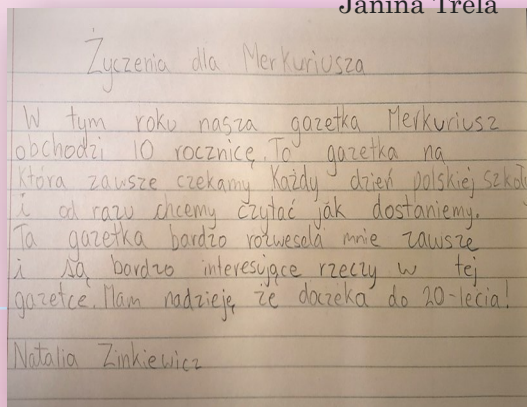 Janina Trela
Życzenia dla Merkuriusza
W tym roku nasza gazetka Merkuriusz
obchodzi 10 rocznicę. To gazetka na
którą zawsze czekamy każdy dzień polskiej szkoł
i od razu chcemy czytać jak dostaniemy.
Ta gazetka bardzo rozwesela mnie zawsze
i są bardzo interesujące rzeczy w tej
gazetce. Mam nadzieję, że doczeka do 20-lecia!
Natalia Zinkiewicz